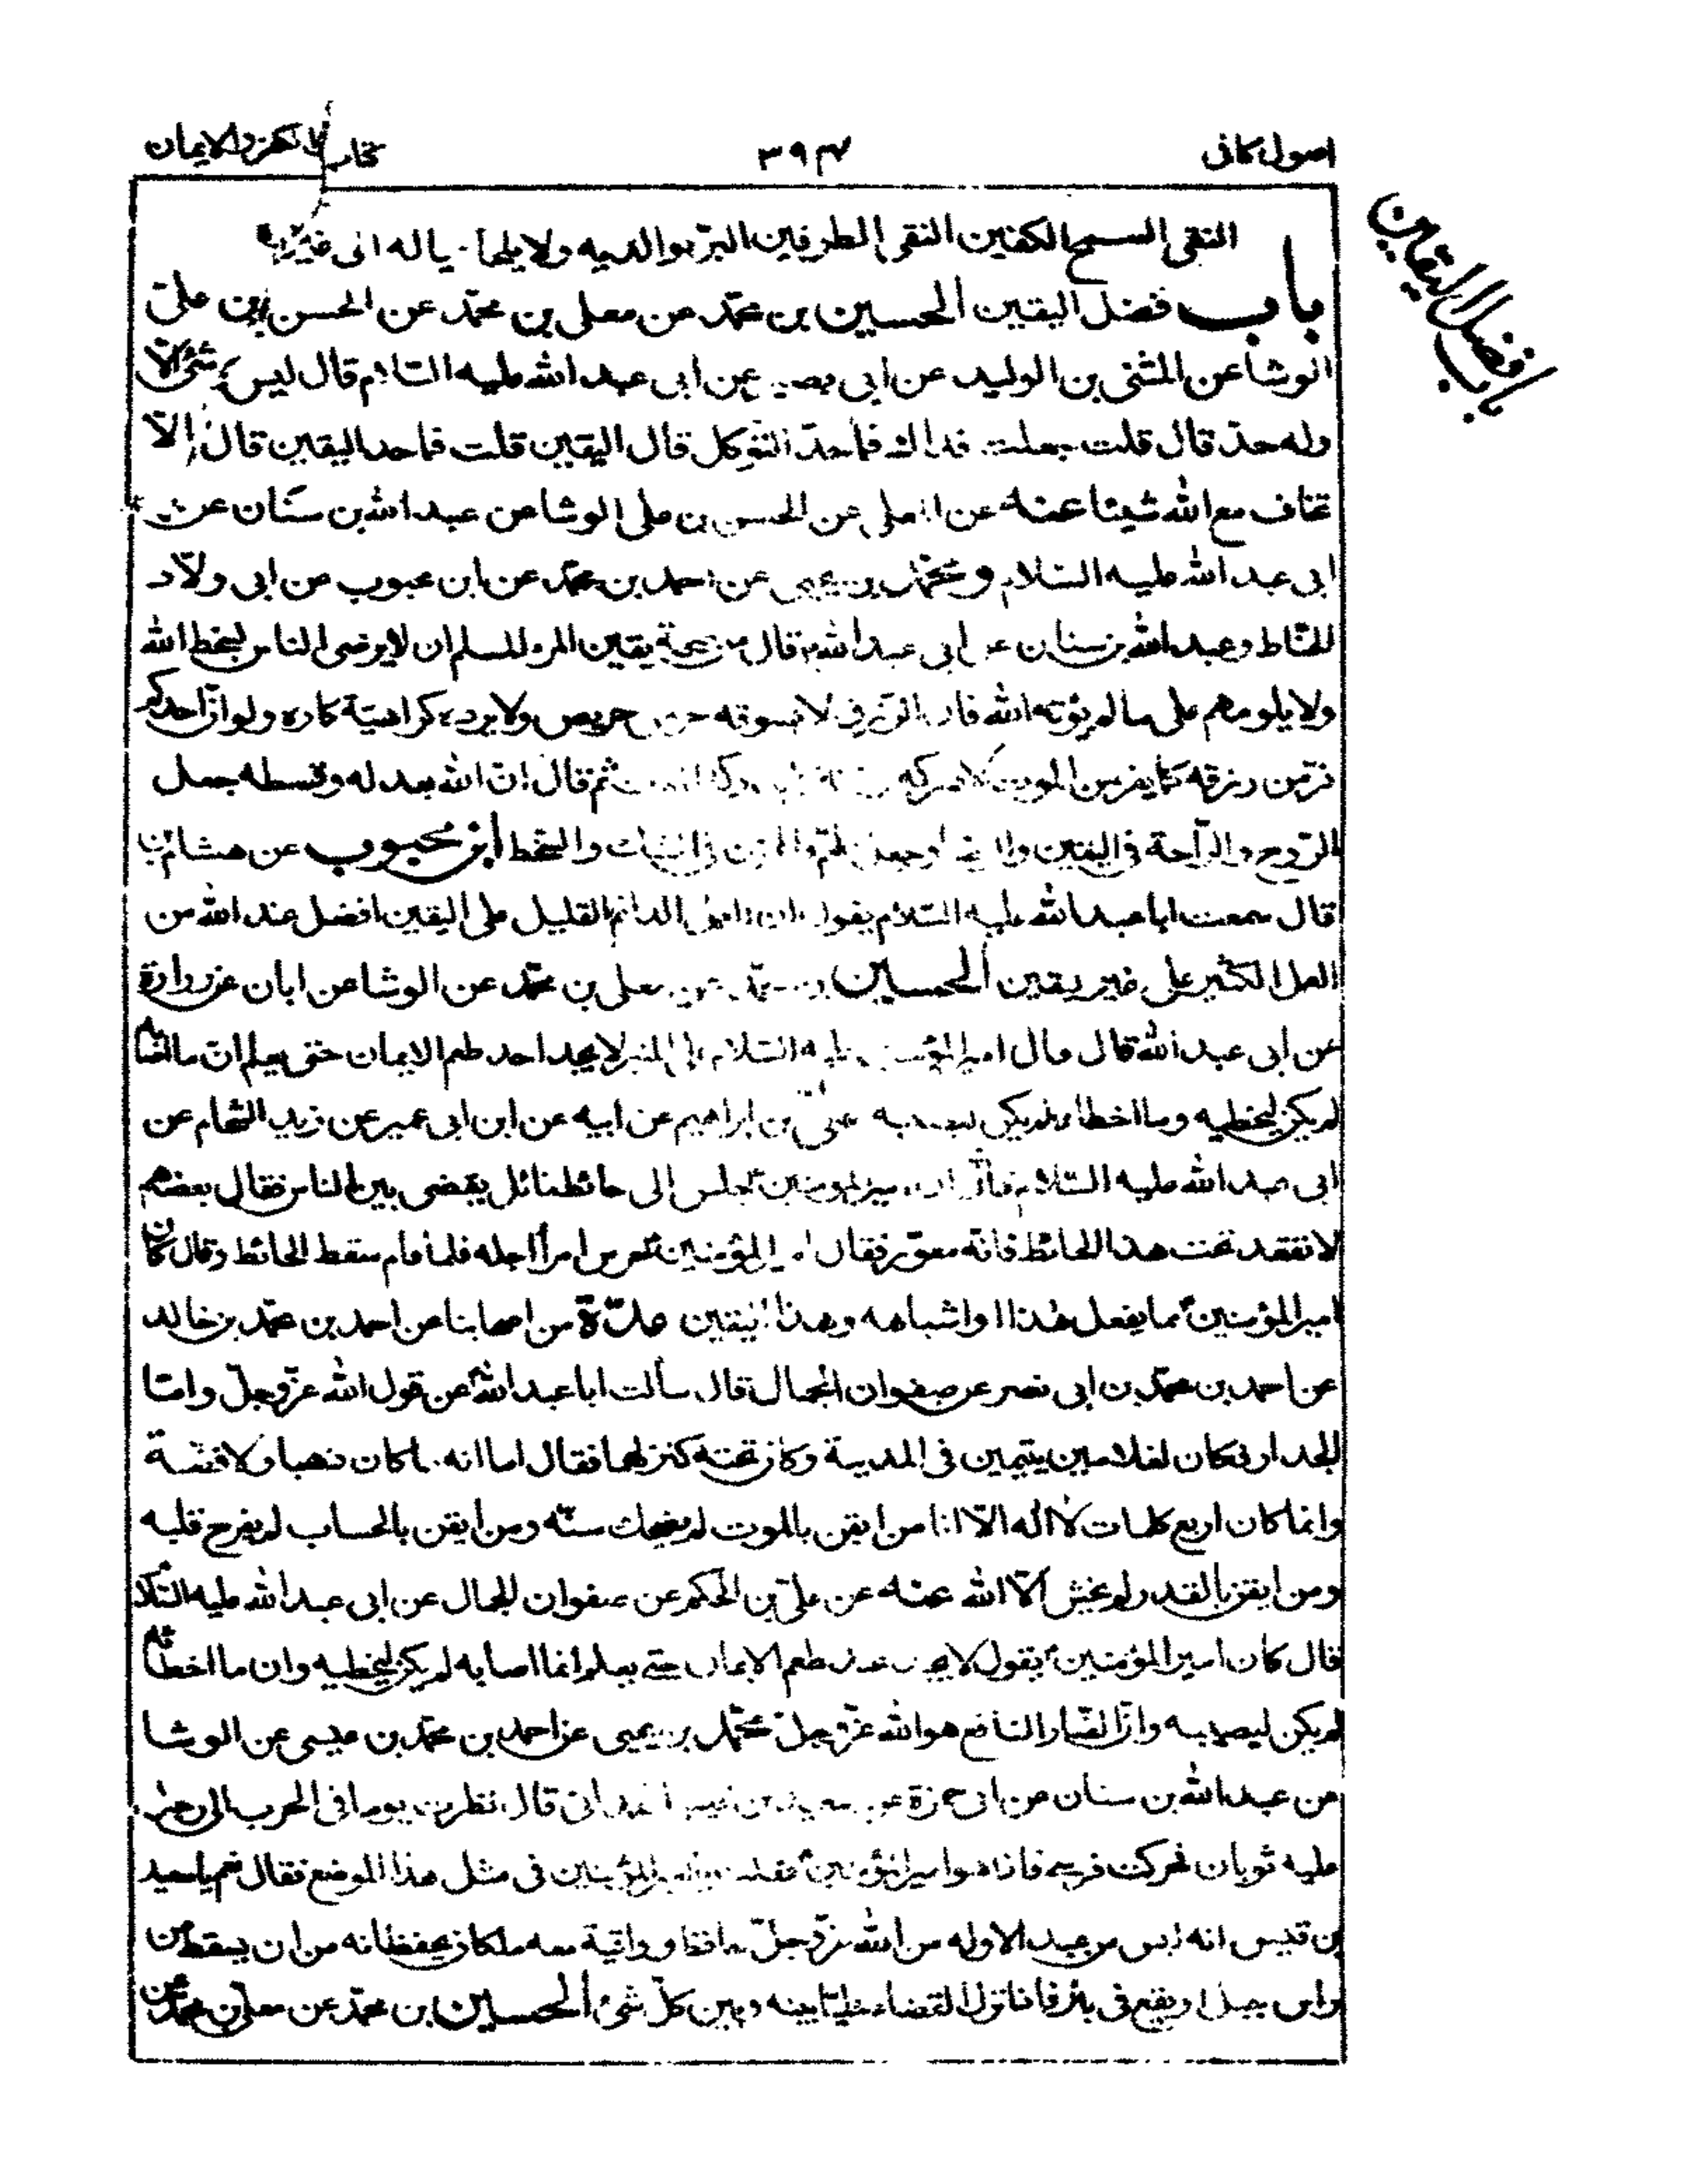 اصول کافی
۳۹۴
کتاب الکفر والایمان
باب فضل الیقین
النقی السمح الکفین النقی الطرفین البرّ بوالدیه ولا یلجأ عیاله الی غیره
باب فضل الیقین الحسین بن محمّد عن معلی بن محمّد عن الحسن بن علیّ
الوشا عن المثنی بن الولید عن ابی بصیر عن ابی عبد الله علیه السّلام قال لیس شئ الّا
وله حدّ قال قلت جعلت فداك فما حدّ التّوکل قال الیقین قلت فما حد الیقین قال الّا
تخاف مع الله شیئا عنه عن المعلی عن الحسن بن علی الوشا عن عبد الله بن سنان عن
ابی عبد الله علیه السّلام و محمّد بن یحیی عن احمد بن محمّد عن ابن محبوب عن ابی ولّاد
الحنّاط وعبد الله بن سنان عن ابی عبد الله قال من صحة یقین المرء المسلم ان لا یرضی الناس بسخط الله
ولا یلومهم علی ما لم یؤته الله فان الرّزق لا یسوقه حرص حریص ولا یرده کراهیّة کاره ولو انّ احدکم
فرّ من رزقه کما یفرّ من الموت لادرکه رزقه کما یدرکه الموت ثم قال انّ الله بعدله وقسطه جعل
الرّوح والرّاحة فی الیقین والرضا وجعل الهمّ والحزن فی الشك والسّخط ابن محبوب عن هشام بن
قال سمعت ابا عبد الله علیه السّلام یقول ان العمل الدائم القلیل علی الیقین افضل عند الله من
العمل الکثیر علی غیر یقین الحسین بن محمّد عن معلی بن محمّد عن الوشا عن ابان عن زرارة
عن ابی عبد الله قال قال امیر المؤمنین علیه السّلام علی المنبر لا یجد احد طعم الایمان حتی یعلم انّ ما اصابه
لم یکن لیخطیه وما اخطاه لم یکن لیصیبه علیّ بن ابراهیم عن ابیه عن ابن ابی عمیر عن زید الشّحام عن
ابی عبد الله علیه السّلام انّ امیر المؤمنین جلس الی حائط مائل یقضی بین الناس فقال بعضهم
لا تقعد تحت هذا الحائط فانّه معوّر فقال امیر المؤمنین حرس امرأ اجله فلما قام سقط الحائط وقال کان
امیر المؤمنین مما یفعل هذا واشباهه وهذا الیقین عدّة من اصحابنا عن احمد بن محمّد بن خالد
عن احمد بن محمّد بن ابی نصر عن صفوان الجمال قال سألت ابا عبد الله عن قول الله عزّ وجلّ وامّا
الجدار فکان لغلامین یتیمین فی المدینة وکان تحته کنز لهما فقال اما انه ما کان ذهبا ولا فضّة
وانما کان اربع کلمات لا اله الّا انا من ایقن بالموت لم یضحك سنّه ومن ایقن بالحساب لم یفرح قلبه
ومن ایقن بالقدر لم یخش الّا الله عنه عن علیّ بن الحکم عن صفوان الجمال عن ابی عبد الله علیه السّلام
قال کان امیر المؤمنین یقول لا یجد عبد طعم الایمان حتی یعلم انما اصابه لم یکن لیخطیه وان ما اخطأه
لم یکن لیصیبه وانّ الضّار النافع هو الله عزّ وجلّ محمّد بن یحیی عن احمد بن محمّد بن عیسی عن الوشا
عن عبد الله بن سنان عن ابی حمزة عن سعید بن قیس الهمدانی قال نظرت یوما فی الحرب الی رجل
علیه ثوبان فحرکت فرسی فاذا هو امیر المؤمنین فقلت یا امیر المؤمنین فی مثل هذا الموضع فقال نعم یا سعید
بن قیس انه لیس من عبد الا وله من الله عزّ وجلّ حافظ وواقیة معه ملکان یحفظانه من ان یسقط من
راس جبل او یقع فی بئر فاذا نزل القضاء خلّیا بینه وبین کلّ شئ الحسین بن محمّد عن معلی بن محمّد عن